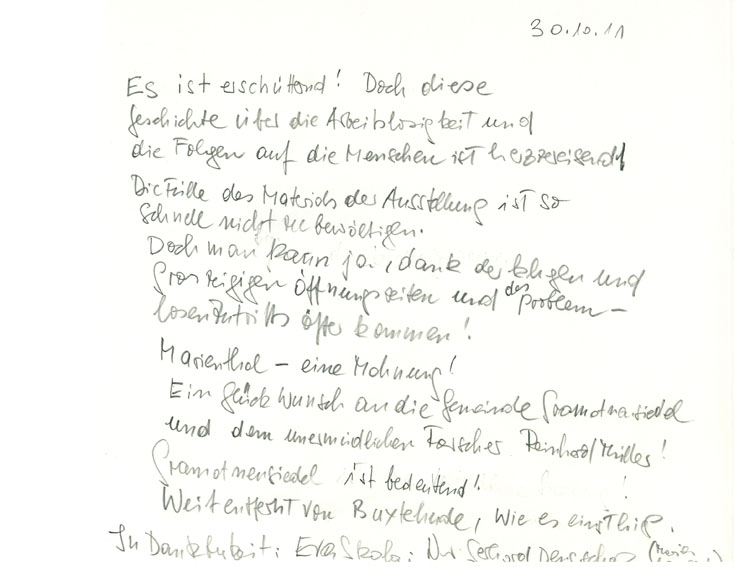 30.10.11
Es ist erschütternd! Doch diese
Geschichte über die Arbeitslosigkeit und
die Folgen auf die Menschen ist herzzereisend
Die Fülle des Materials der Ausstellung ist so
schnell nicht zu bewältigen.
Doch man kann ja, dank der klugen und
grosszügigen Öffnungszeiten und des Problem-
losen Zutritts öfter kommen!
Marienthal - eine Mahnung!
Ein Glückwunsch an die Gemeinde Gramatneusiedel
und dem unermüdlichen Forscher Reinhard Müller!
Gramatneusiedel ist bedeutend!
Weit entfernt von Buxtehude, wie es einst hieß.
In Dankbarkeit: Eva